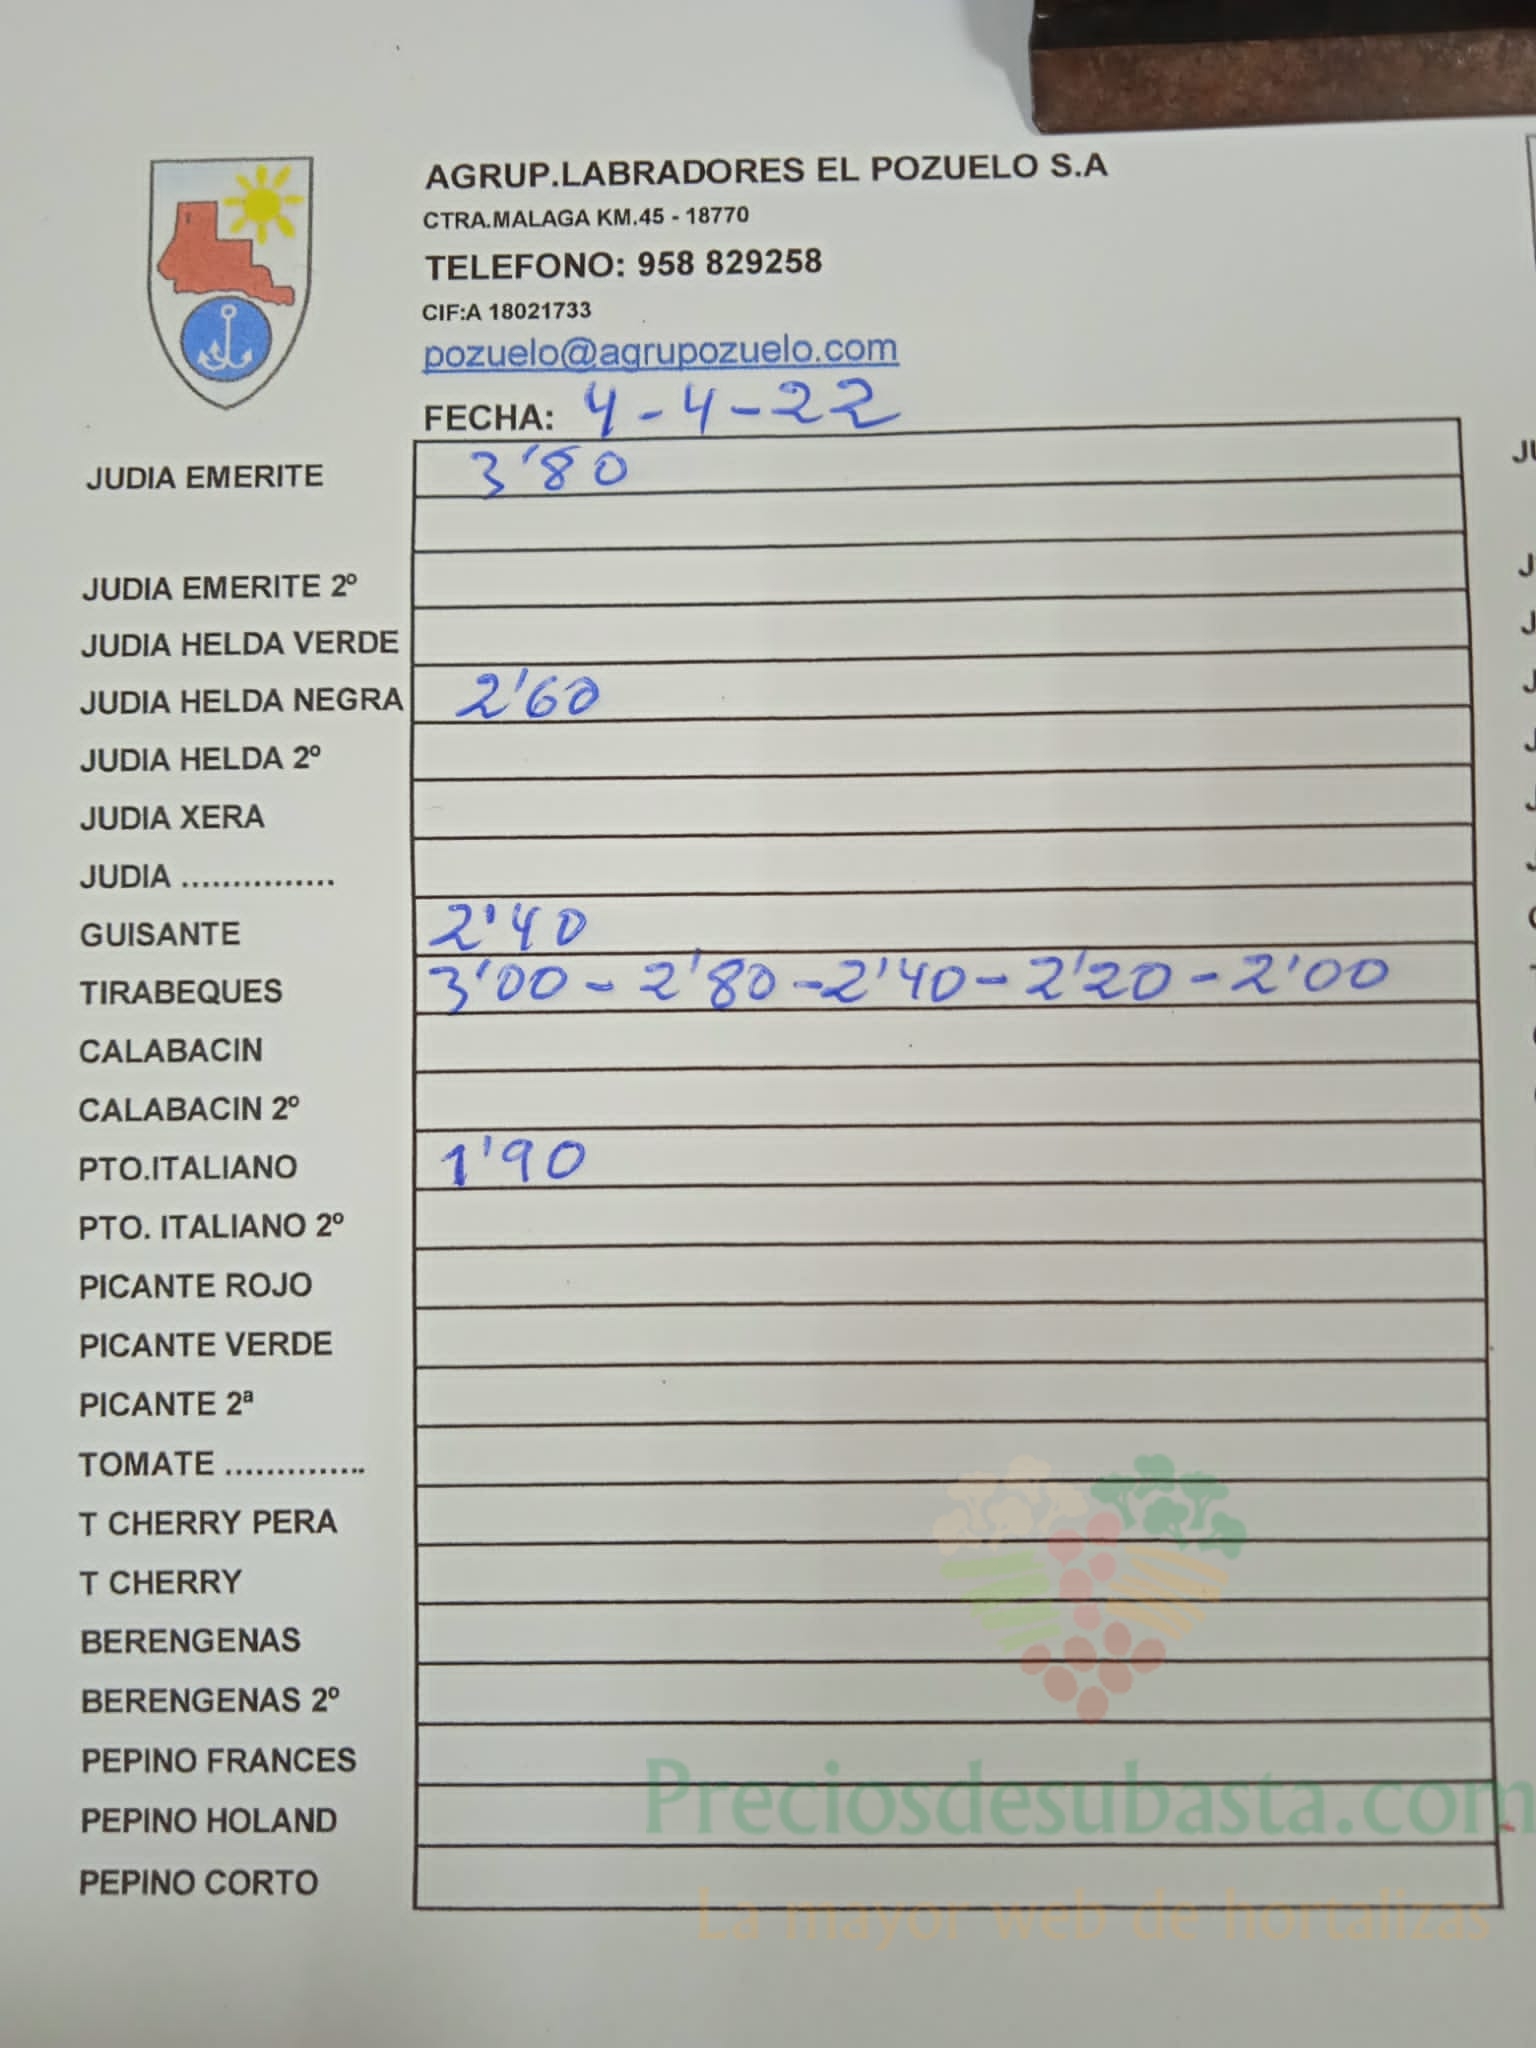 AGRUP.LABRADORES EL POZUELO S.A
CTRA.MALAGA KM.45 - 18770
TELEFONO: 958 829258
CIF:A 18021733
pozuelo@agrupozuelo.com
FECHA: 4-4-22
JUDIA EMERITE 3'80
JUDIA EMERITE 2º
JUDIA HELDA VERDE
JUDIA HELDA NEGRA 2'60
JUDIA HELDA 2º
JUDIA XERA
JUDIA ...............
GUISANTE 2'40
TIRABEQUES 3'00 - 2'80 - 2'40 - 2'20 - 2'00
CALABACIN
CALABACIN 2º
PTO.ITALIANO 1'90
PTO. ITALIANO 2º
PICANTE ROJO
PICANTE VERDE
PICANTE 2ª
TOMATE ..............
T CHERRY PERA
T CHERRY
BERENGENAS
BERENGENAS 2º
PEPINO FRANCES
PEPINO HOLAND
PEPINO CORTO
Preciosdesubasta.com
La mayor web de hortalizas